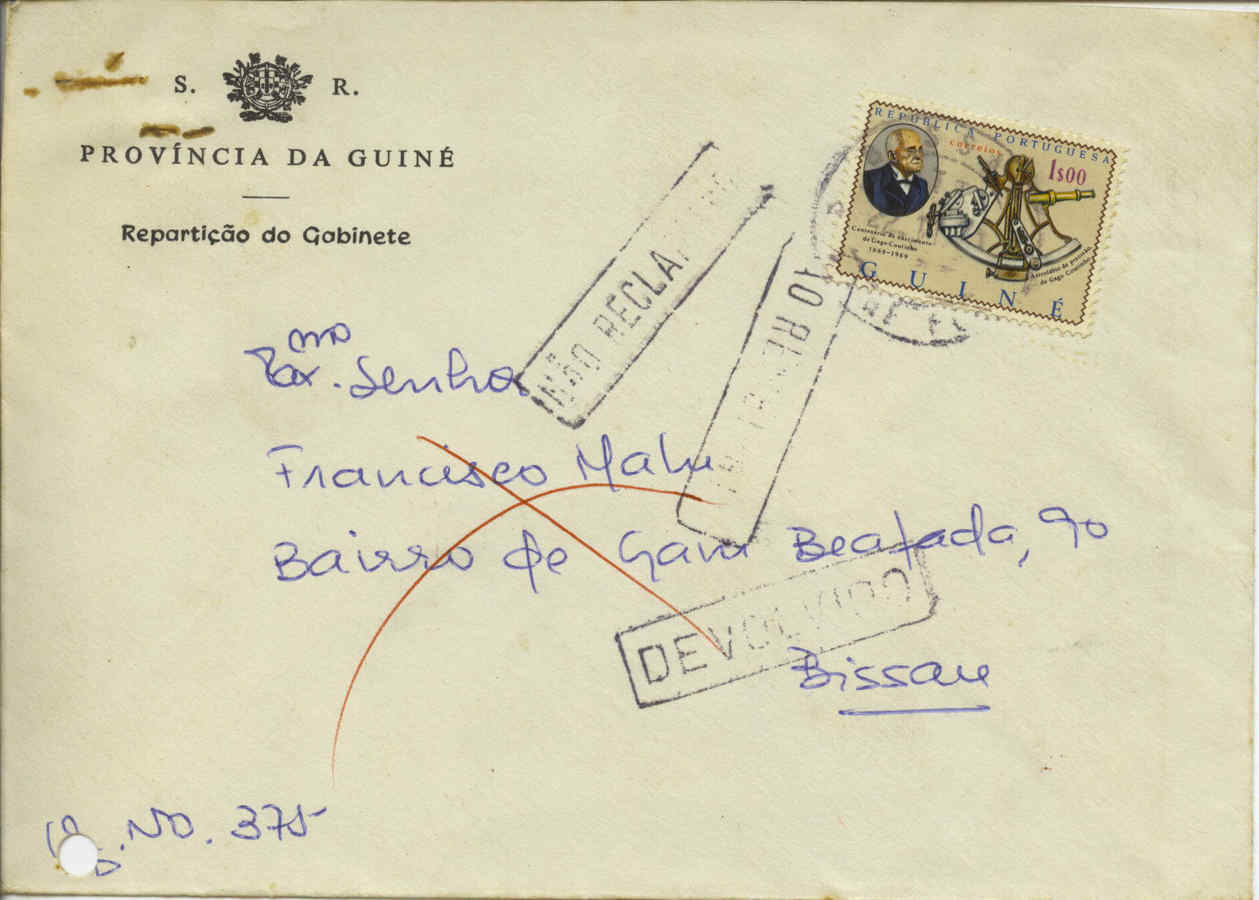 S. R.
PROVÍNCIA DA GUINÉ
Repartição do Gabinete
REPÚBLICA PORTUGUESA
correios
1$00
Centenário do nascimento
de Gago Coutinho
1869-1969
Astrolábio de precisão
de Gago Coutinho
GUINÉ
NÃO RECLAMADO
DEVOLVIDO
Exmo. Senhor
Francisco Mahu
Bairro de Gam Beafada, 90
Bissau
NO. 375